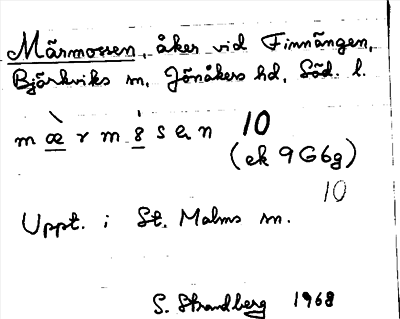 Märmossen, åker vid Finnängen,
Björkviks sn, Jönåkers hd, Söd. l.
m æ̀ r m 8́ s e n 10
(ek 9G6g)
10
Uppt. i St. Malms sn.
S. Strandberg 1968